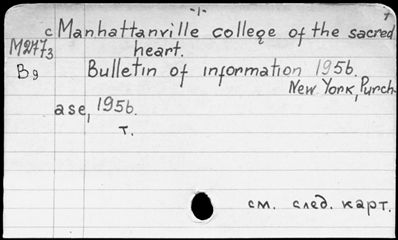 -1-
c Manhattanville college of the sacred
M2773 heart.
B9 Bulletin of information 1956.
New York, Purch-
ase, 1956.
т.
см. след. карт.